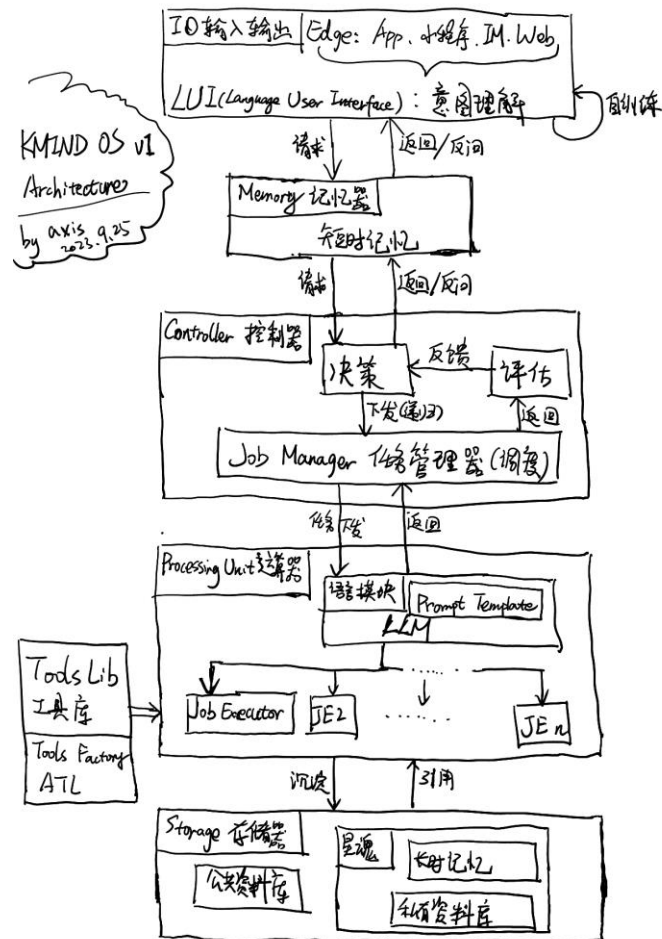 IO输入输出 Edge: App、小程序、IM、Web
LUI(Language User Interface): 意图理解
自训练
KMIND OS v1
Architecture
by axis
2023.9.25
请求
返回/反问
Memory 记忆器
短时记忆
请求
返回/反问
Controller 控制器
决策
反馈
评估
下发(递归)
返回
Job Manager 任务管理器(调度)
任务下发
返回
Processing Unit 运算器
语言模块
Prompt Template
LLM
Tools Lib
工具库
Tools Factory
ATL
Job Executor
JE2
......
......
JE n
沉淀
引用
Storage 存储器
公共资料库
星魂
长时记忆
私有资料库